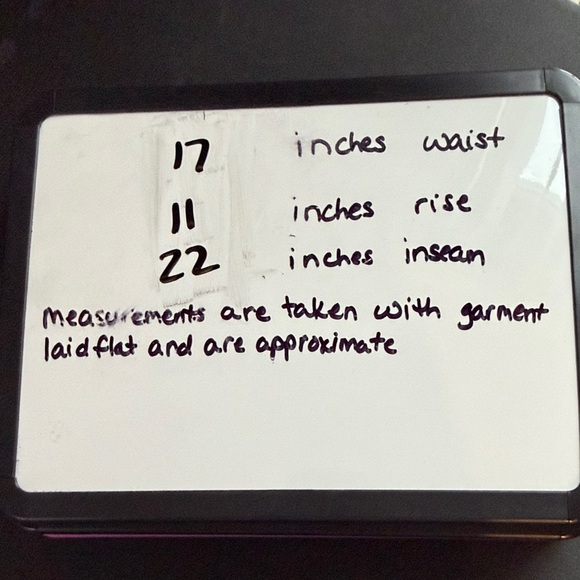 17 inches waist
11 inches rise
22 inches inseam
measurements are taken with garment
laid flat and are approximate